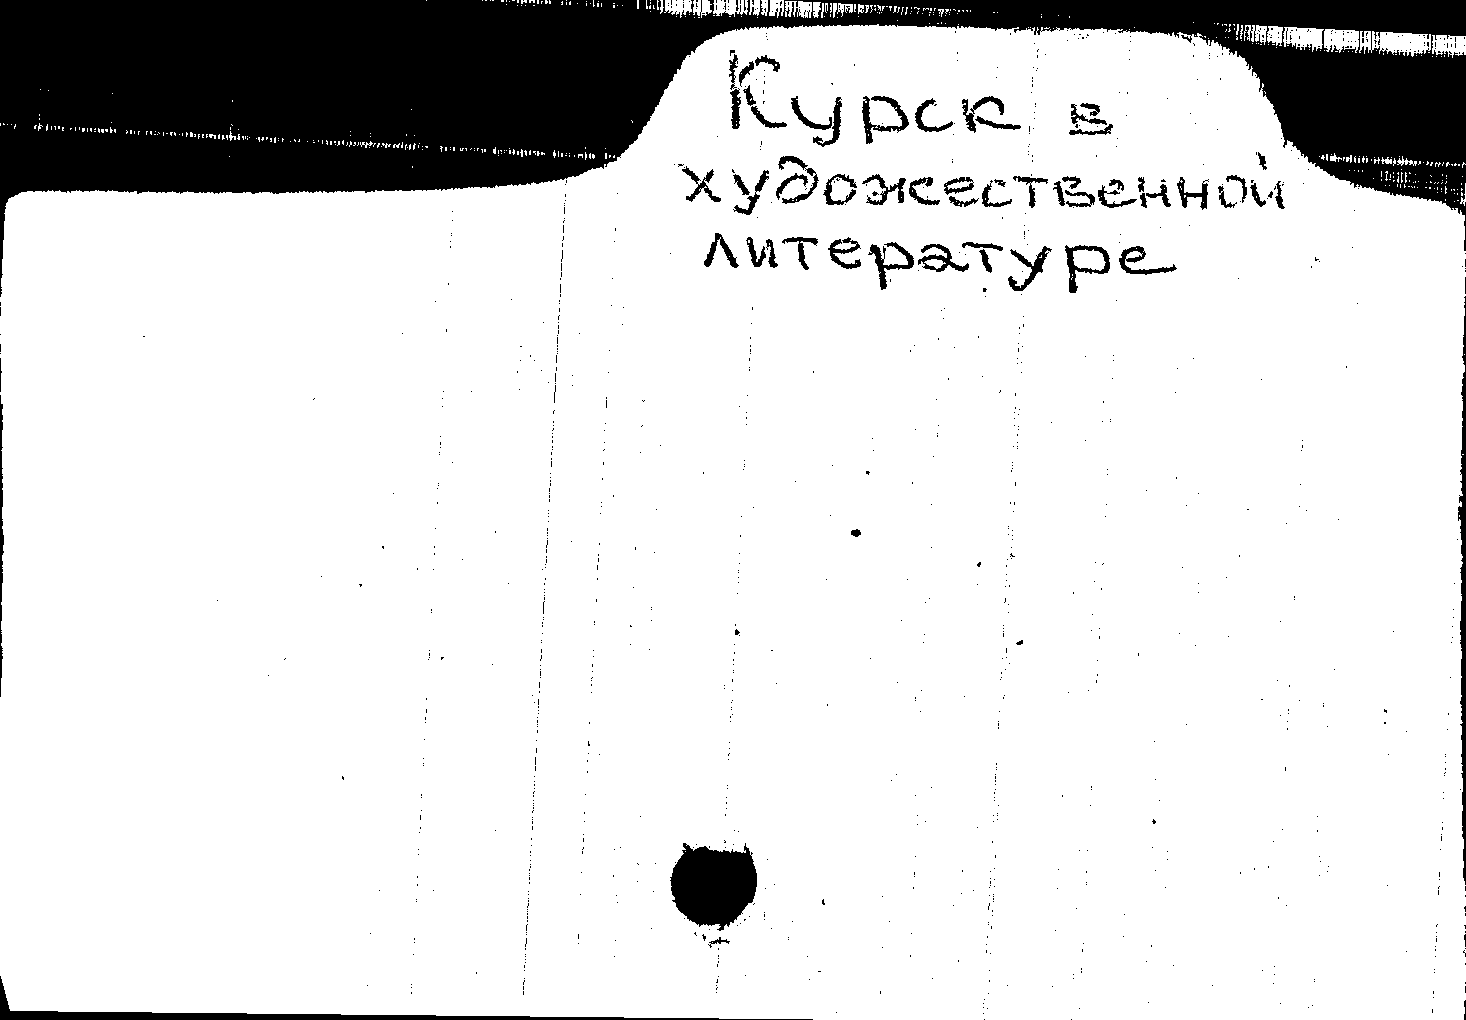 Курск в
художественной
литературе